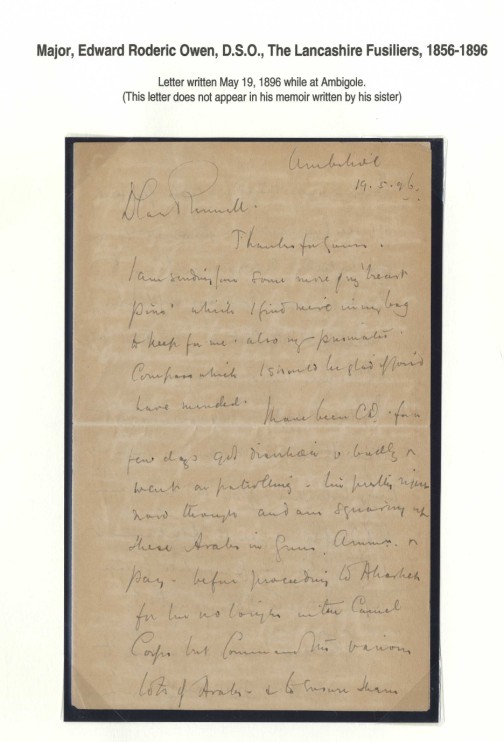 Major, Edward Roderic Owen, D.S.O., The Lancashire Fusiliers, 1856-1896
Letter written May 19, 1896 while at Ambigole.
(This letter does not appear in his memoir written by his sister)
19.5.96.
Dear
Thanks for yours.
I am sending you some more
pins' which I find were in my bag
to keep for me. also my prismatic
Compass which I should be glad if you'd
have mended.
I have been C.O. for a
few days got diarrhoea v badly &
went on patrolling. I'm pretty
now though and am squaring up
these Arabs in Guns, Ammn. &
Pay. before proceeding to Akasheh
for I'm no longer in the Camel
Corps but Command the various
lots of Arabs - & to ensure them